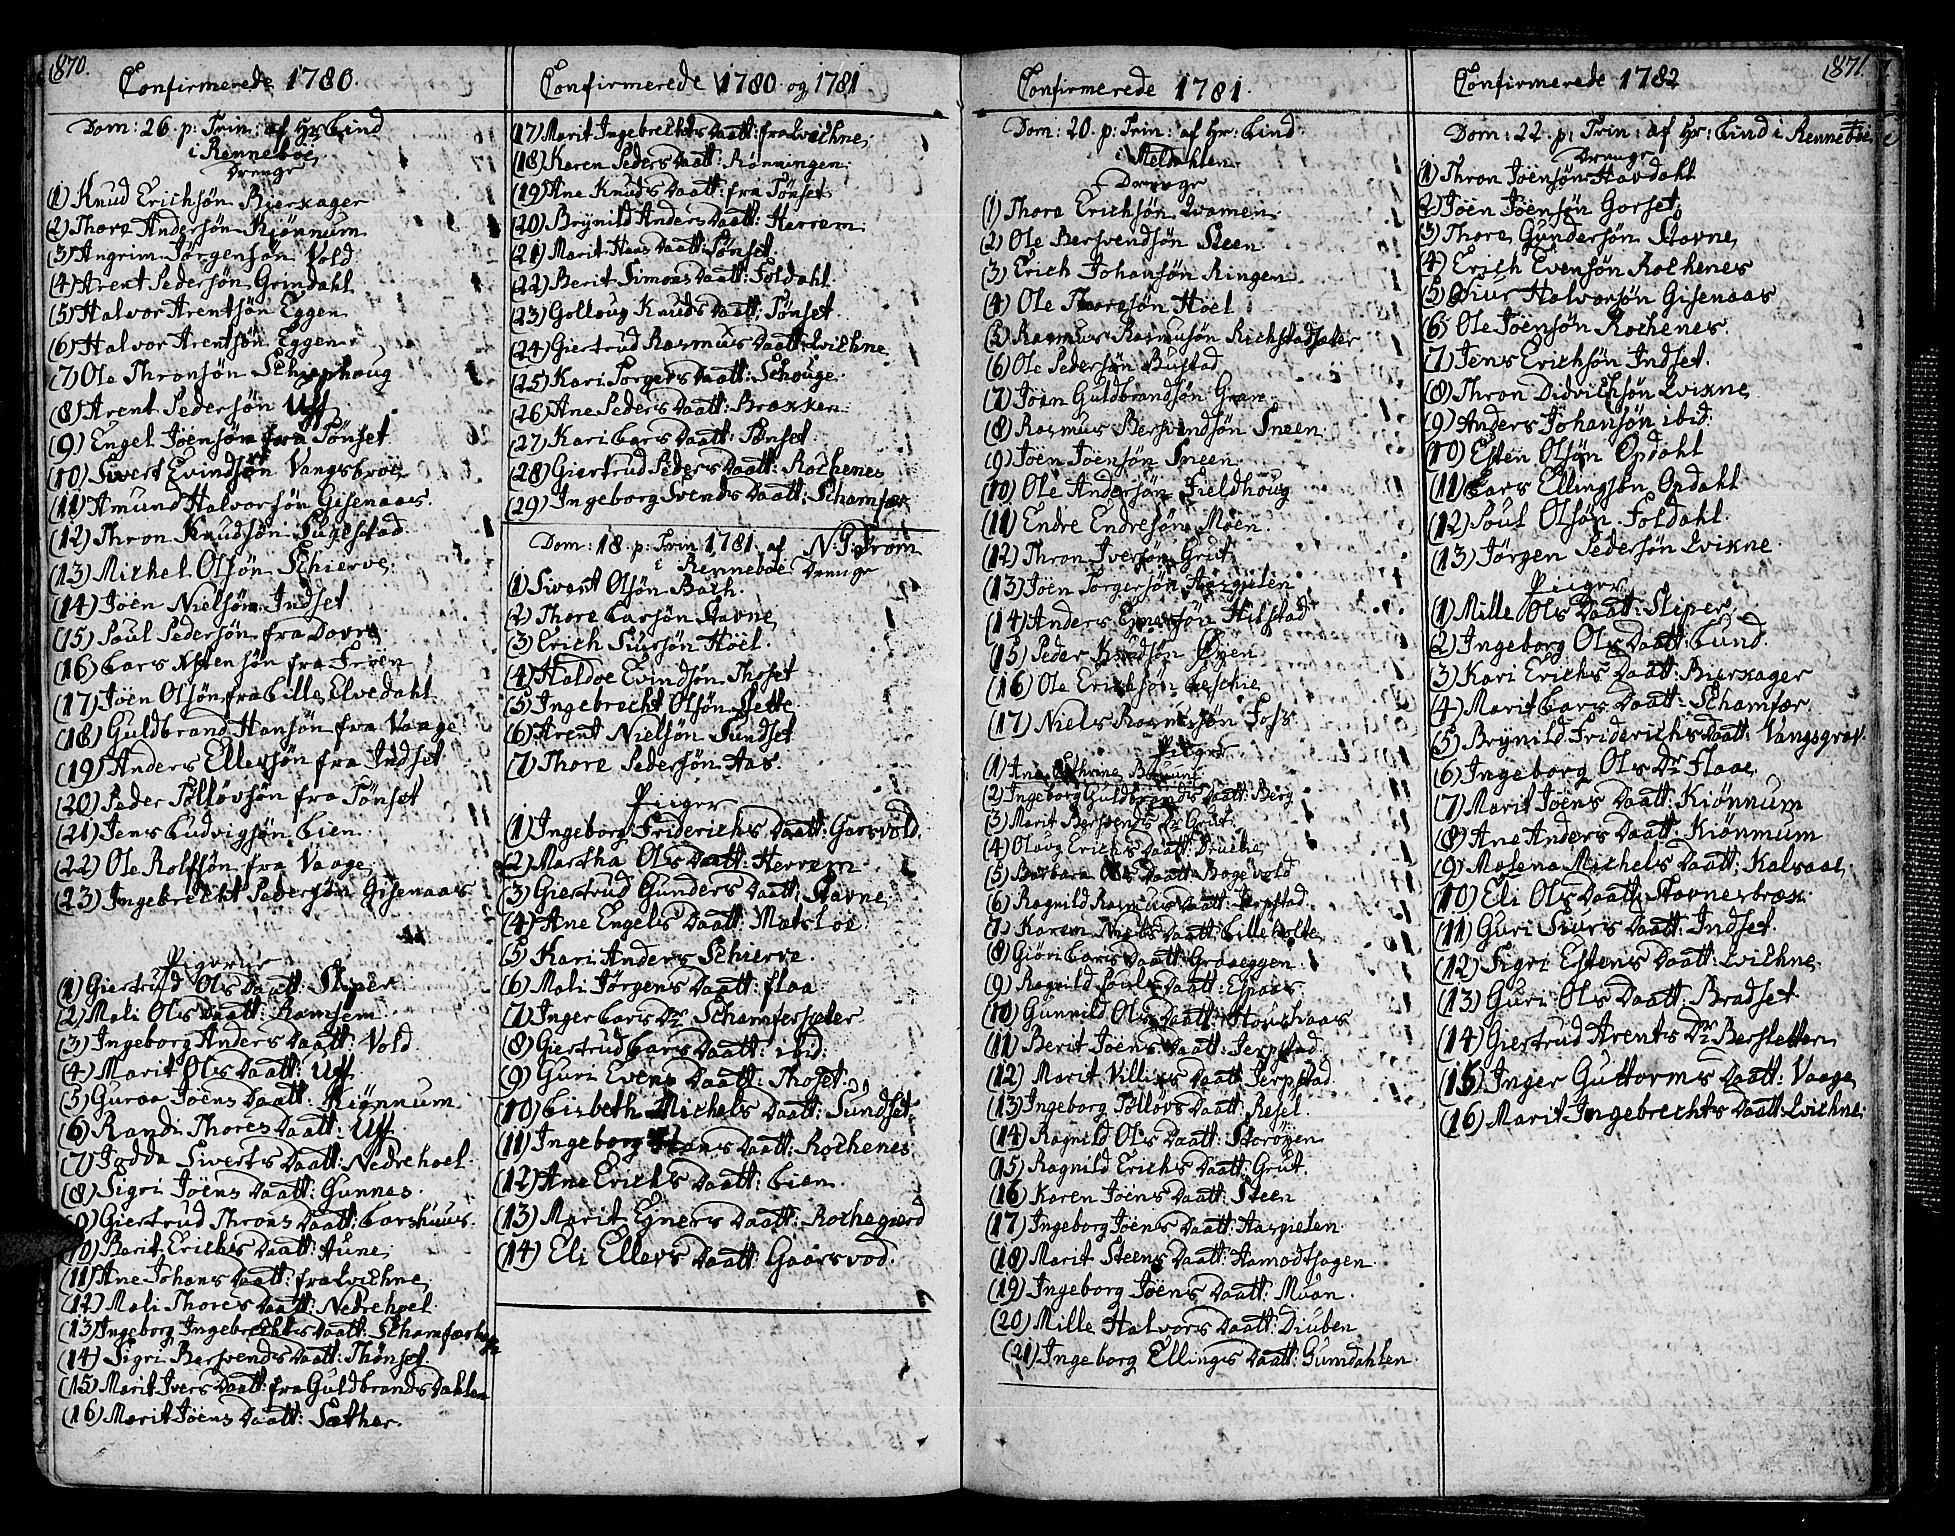 870.
Confirmerede 1780.
Dom: 26. p: Trin: af Hr: Lind
i Renneboe
Drenge
(1) Knud Erichsön Bierkager
(2) Thore Andersön Kiönnum
(3) Angrim Jörgensön Vold
(4) Arent Pedersön Grindahl
(5) Halvor Arentsön Eggen
(6) Halvor Arentsön Eggen
(7) Ole Thronsön Schiephoug
(8) Arent Pedersön Uff
(9) Engel Joensön fra Tönset
(10) Sivert Evindsön Vangsbroe
(11) Amund Halvorsön Gisenaas.
(12) Thron Knudsön
(13) Michel Olsön Schierve.
(14) Joen Nielsön Indset
(15) Poul Pedersön fra Dovre
(16) Lars fra Froen
(17) Joen Olsön fra Lille Elvedahl
(18) Guldbrand Hansön fra Vaage
(19) Anders Ellevsön fra Indset
(20) Peder Tollövsön fra Tönset
(21) Jens Ludvigsön Lien.
(22) Ole Rolfsön fra Vaage.
(23) Ingebrecht Pedersön Gisenaas
Pigerne
(1) Giertrud Ols Daatt: Sliper
(2) Mali Ols Daatt: Ramsem
(3) Ingeborg Anders Daatt: Vold
(4) Marit Ols Daatt: Uff
(5) Guroa Joens Daatt: Kiönnum
(6) Randi Thores Daatt: Uff
(7) Jodda Siverts Daatt: Nedrehoel
(8) Sigri Joens Daatt: Gunnes.
(9) Giertrud Throns Daatt: Larshuus.
(10) Berit Erichs Daatt: Aune
(11) Ane Johans Daatt: fra Qvichne
(12) Mali Thores Daatt: Nedrehoel
(13) Ingeborg Ingebrechts Daatt:
(14) Sigri Bersvends Daatt: Thönset.
(15) Marit Ivers Daatt: fra Guldbrands Dahlen
(16) Marit Joens Daatt: Sæther.
Confirmerede 1780 og 1781
(17) Marit Ingebrechts Daatt: fra Qvichne
(18) Karen Peders Daatt: Rönningen.
(19) Ane Knuds Daatt: fra Tönset
(20) Brynild Anders Daatt: Herrem.
(21) Marit Hans Daatt: Tönset
(22) Berit Simons Daatt: Foldahl.
(23) Golloug Knuds Daatt: Tönset.
(24) Giertrud Rasmus Daatt: Qvichne
(25) Kari Torgers Daatt: Schouge.
(26) Ane Peders Daatt: Brækken.
(27) Kari Lars Daatt: Tönset.
(28) Giertrud Peders Daatt: Rochenes
(29) Ingeborg Svends Daatt: Schamfær
Dom: 18. p: Trin 1781. af N. P. Drom
i Renneboe Drenge
(1) Sivert Olsön Bach.
(2) Thore Larsön Stavne
(3) Erich Siursön Hoel.
(4) Haldoe Evindsön Thoset
(5) Ingebrecht Olsön Slette
(6) Arent Nielsön Sundset
(7) Thore Pedersön Aas.
Piiger
(1) Ingeborg Friderichs Daatt: Gaarsvold.
(2) Martha Ols Daatt: Herrem
(3) Giertrud Gunders Daatt: Stavne
(4) Ane Engels Daatt: Mærsloe.
(5) Kari Anders Schierve.
(6) Mali Jörgens Daatt: Flaa.
(7) Inger Lars Dr Schamfersæter
(8) Giertrud Lars Daatt: ibid.
(9) Guri Evens Daatt: Thoset.
(10) Lisbeth Michels Daatt: Sundset
(11) Ingeborg Hans Daatt: Rochenes
(12) Ane Erichs Daatt: Lien.
(13) Marit Egners Daatt: Rochegierd
(14) Eli Ellevs Daatt: Gaarsvod.
Confirmerede 1781.
Dom: 20. p: Trin: af Hr: Lind
i Meldahlen
Drenge
(1) Thore Erichsön Qvamen.
(2) Ole Bersvendsön Steen
(3) Erich Johansön Ringen
(4) Ole Thoresön Hoel
(5) Rasmus Rasmusön Richstadsæter
(6) Ole Pedersön Bustad
(7) Joen Guldbrandsön Gran.
(8) Rasmus Bersvendsön Sneen.
(9) Joen Joensön Sneen
(10) Ole Andersön Fieldhoug
(11) Endre Endresön Moen.
(12) Thron Iversön Grut
(13) Joen Torgersön Aaspielen
(14) Anders Egnersön Hilstad
(15) Peder Knudsön Öyen
(16) Ole Erichsön
(17) Niels Rasmusön Foss
Piiger
(1) Ane Cathrine
(2) Ingeborg Guldbrands Daatt: Berg
(3) Marit Bersvends Dr Grut.
(4) Olaug Erichs Daatt:
(5) Barbara Ols Daatt: Bögevold
(6) Ragnild Rasmus Daatt: Jerpstad.
(7) Karen Niels Daatt: Lilleholte
(8) Giöri Lars Daatt: Graaeggen
(9) Ragnild Pouls Daatt: Espaas.
(10) Gunnild Ols Daatt:
(11) Berit Joens Daatt: Jerpstad
(12) Marit Villius Daatt: Jerpstad.
(13) Ingeborg Tollövs Daatt: Resel.
(14) Ragnild Ols Daatt: Storöyen
(15) Ragnild Erichs Daatt: Grut.
(16) Karen Joens Daatt: Steen
(17) Ingeborg Joens Daatt: Aaspielen.
(18) Marit Steens Daatt: Hamodthagen.
(19) Ingeborg Joens Daatt: Muan.
(20) Mille Halvors Daatt: Diuben
(21) Ingeborg Ellings Daatt: Gumdahlen.
871.
Confirmerede 1782
Dom: 22. p: Trin: af Hr: Lind i Renneboe
Drenge
(1) Thron Joensön Havdahl
(2) Joen Joensön Gorset.
(3) Thore Gundersön Stavne
(4) Erich Evensön Rochenes
(5) Siur Halvorsön Gisenaas
(6) Ole Joensön Rochenes.
(7) Jens Erichsön Indset.
(8) Thron Didrichsön Qvikne
(9) Anders Johansön ibid.
(10) Esten Olsön Opdahl
(11) Lars Ellingsön Opdahl
(12) Poul Olsön Foldahl.
(13) Jörgen Pedersön Qvikne.
Piiger
(1) Mille Ols Daatt: Sliper
(2) Ingeborg Ols Daatt: Lund.
(3) Kari Erichs Daatt: Bierkager
(4) Marit Lars Daatt: Schamfær
(5) Brynild Friderichs Daatt: Vangsgrav.
(6) Ingeborg Ols Dr Flaae
(7) Marit Joens Daatt: Kiönnum
(8) Ane Anders Daatt: Kiönnum
(9) Malena Michels Daatt: Kalsaae.
(10) Eli Ols Daatt: Stavnesbræk.
(11) Guri Siurs Daatt: Indset.
(12) Sigri Estens Daatt: Qvichne
(13) Guri Ols Daatt: Bradset
(14) Giertrud Arents Dr Bersletten
(15) Inger Guttorms Daatt: Vaage
(16) Marit Ingebrechts Daatt: Qvichne.